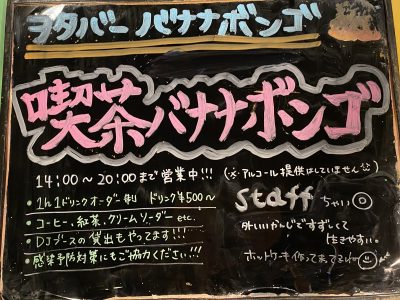 ヲタバー バナナボンゴ
喫茶バナナボンゴ
14:00〜20:00まで営業中!!! (※アルコール提供はしていません)
・1h1ドリンクオーダー制 ドリンク¥500〜
・コーヒー、紅茶、クリームソーダー etc.
・DJブースの貸出もやってます!!!
・感染予防対策にもご協力ください!!!
staff ちゃい
外いいかんじですずしくて
生きやすい。
ホットケーキ作ってまてるね